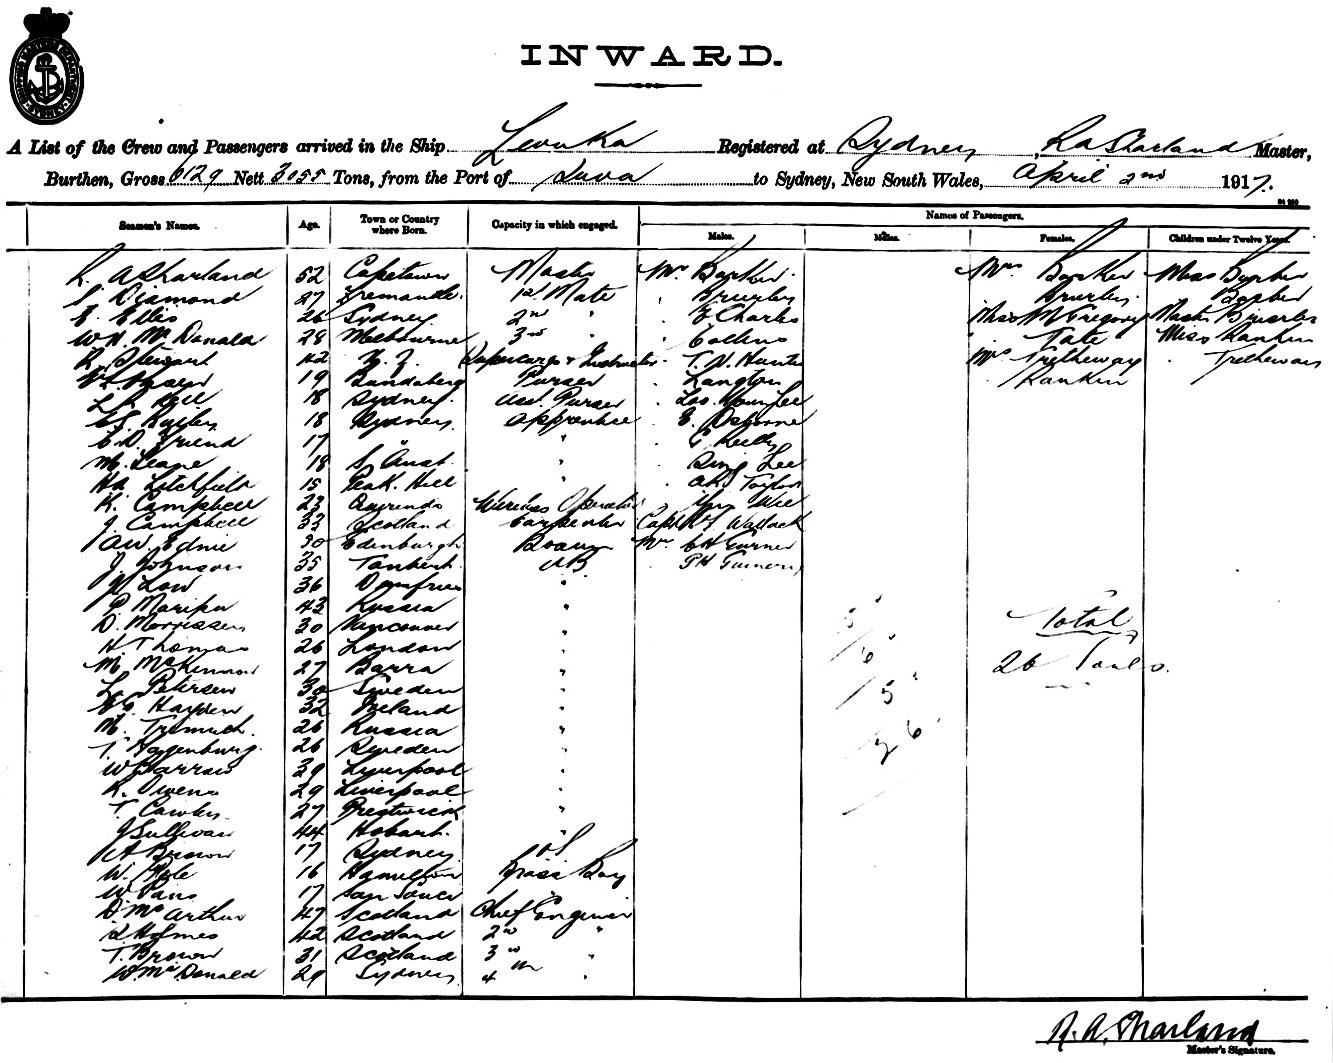 INWARD.
A List of the Crew and Passengers arrived in the Ship Levuka Registered at Sydney, R A Sharland Master,
Burthen, Gross 6129 Nett 3055 Tons, from the Port of Suva to Sydney, New South Wales, April 2nd 1917.
Seamen's Names. Age. Town or Country where Born. Capacity in which engaged. Names of Passengers.
Males. Males. Females. Children under Twelve Years.
R A Sharland 52 Capetown Master Mr Barker Mrs Barker Miss Barber
S Diamond 27 Fremantle 1st Mate " Brierley Brierley Barber
E. Ellis 26 Sydney 2nd " " F Charles Miss McGregor Mastr Brierley
W H McDonald 28 Melbourne 3rd " " Collins Tate Miss Rankin
R. Stewart 42 N.Z. Supercargo & Instructor " T. N. Hunter Mrs Tretheway " Tretheway
19 Bundaberg Purser " Langton Rankin
18 Sydney Asst. Purser "
18 Sydney Apprentice " E. Osborne
C. D. Friend 17 " " " Kelly
M. Leane 18 S. Aust. " " Sing Lee
HA Litchfield 15 Peak Hill " " Taylor
R. Campbell 23 Wireless Operator
J. Campbell 33 Scotland Carpenter Capt Wallack
AW. Ednie 30 Edinburgh Bosun Mr CH Turner
J. Johnson 35 AB " PH
W Low 36 Dumfries "
43 Russia "
D. Morrissey 30 Vancouver " Total
H Thomas 26 London "
M. McKinnon 27 Barra " 26 Souls.
L. Petersen 30 Sweden "
Hayden 32 Ireland "
M. 26 Russia "
T. Hagenburg 26 Sweden "
W Barrow 39 Liverpool "
R. Owens 29 Liverpool "
T Cawley 27 Prestwich "
J Sullivan 44 Hobart "
A Brown 17 Sydney OS
W. Kyle 16 Hamilton Brass Boy
W Pans 17 San Souci "
D. McArthur 47 Scotland Chief Engineer
Holmes 42 Scotland 2nd "
T. Brown 31 Scotland 3rd "
W. McDonald 29 Sydney 4th "
15
6
5
26
R. A. Sharland
Master's Signature.